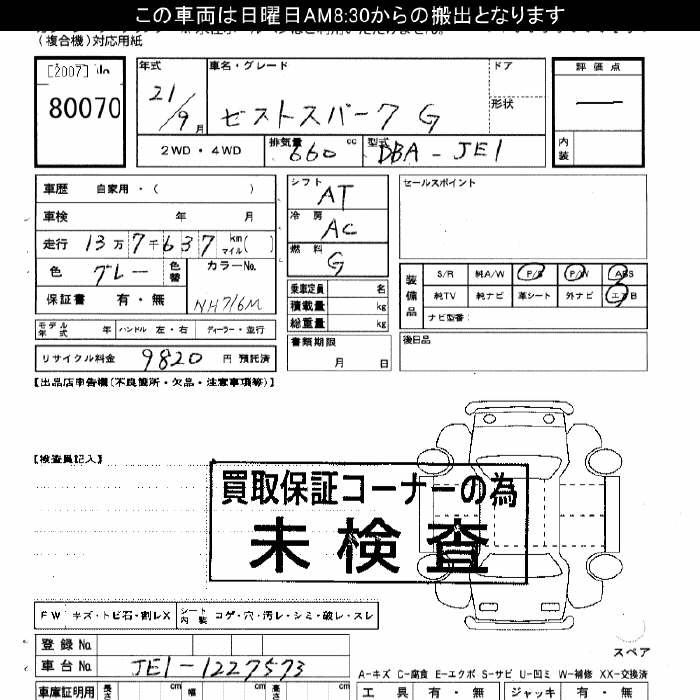 この車両は日曜日AM8:30からの搬出となります
(複合機)対応用紙
[2007] No
80070
年式 21/9月
車名・グレード ゼストスパーク G
ドア
形状
評価点
内装
2WD・4WD
排気量 660 cc
型式 DBA-JE1
車歴 自家用・( )
車検 年 月
走行 13万7千637 km マイル( )
色 グレー 色替
カラーNo. NH716M
保証書 有・無
シフト AT
冷房 AC
燃料 G
乗車定員 名
積載量 kg
総重量 kg
セールスポイント
装備品
S/R 純A/W P/S P/W ABS
純TV 純ナビ 革シート 外ナビ エアB
ナビ型番:
モデル年式 年 ハンドル 左・右 ディーラー・並行
リサイクル料金 9820 円 預託済
書類期限 月 日
後日品
【出品店申告欄(不良箇所・欠品・注意事項等)】
【検査員記入】
買取保証コーナーの為
未検査
FW キズ・トビ石・割レX
シート内装 コゲ・穴・汚レ・シミ・破レ・スレ
登録No.
車台No. JE1-1227573
スペア
A-キズ C-腐食 E-エクボ S-サビ U-凹ミ W-補修 XX-交換済
車庫証明用 長さ cm 幅 cm 高さ cm
工具 有・無 ジャッキ 有・無